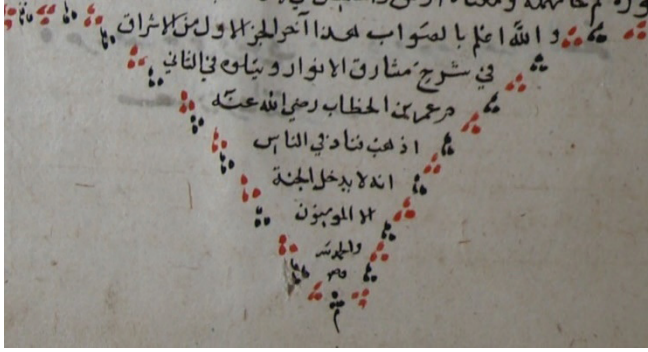 والله اعلم بالصواب هذا آخر الجز الاول من الاشراق
في شرح مشارق الانوار ويتلوه في الثاني
عمر بن الخطاب رضي الله عنه
اذهب فناد في الناس
انه لا يدخل الجنة
الا المومنون
والحمد لله
م